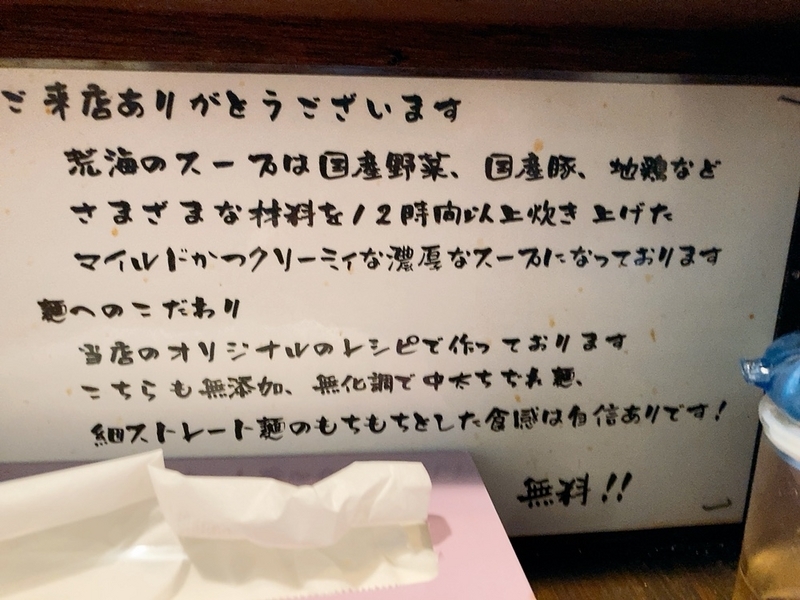 ご来店ありがとうございます
荒海のスープは国産野菜、国産豚、地鶏など
さまざまな材料を12時間以上炊き上げた
マイルドかつクリーミィな濃厚なスープになっております
麺へのこだわり
当店のオリジナルのレシピで作っております
こちらも無添加、無化調で中太ちぢれ麺、
細ストレート麺のもちもちとした食感は自信ありです!
無料!!